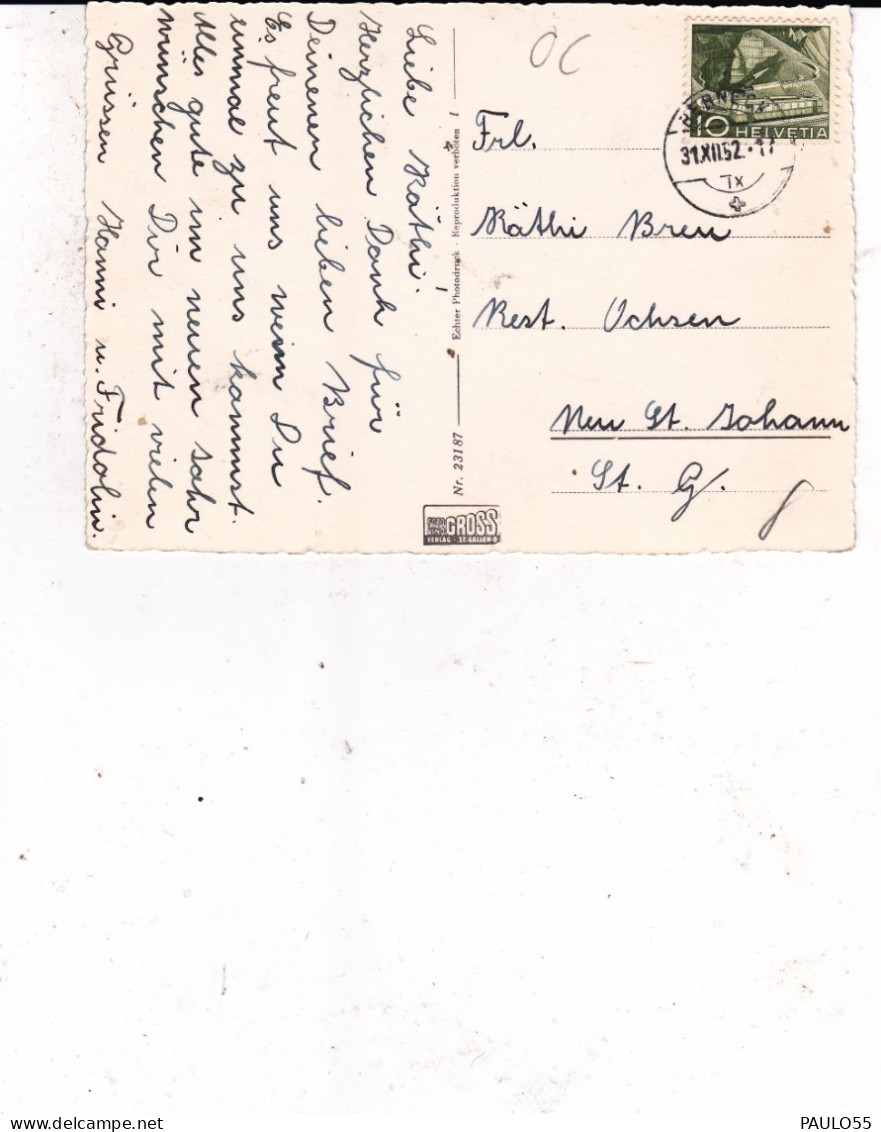 Liebe Käthi!
Herzlichen Dank für
Deinenen lieben Brief.
Es freut uns wenn Du
einmal zu uns kommst.
Alles gute im neuen Jahr
wünschen Dir mit vielen
Grüssen Hanni u. Fridolin.
Nr. 23187 Echter Photodruck - Reproduktion verboten !
FOTO
GROSS
VERLAG - ST. GALLEN-O
OC
10 HELVETIA
31.XII.52.-17
Frl.
Käthi Breu
Rest. Ochsen
Neu St. Johann
St. G.
delcampe.net
PAULO55